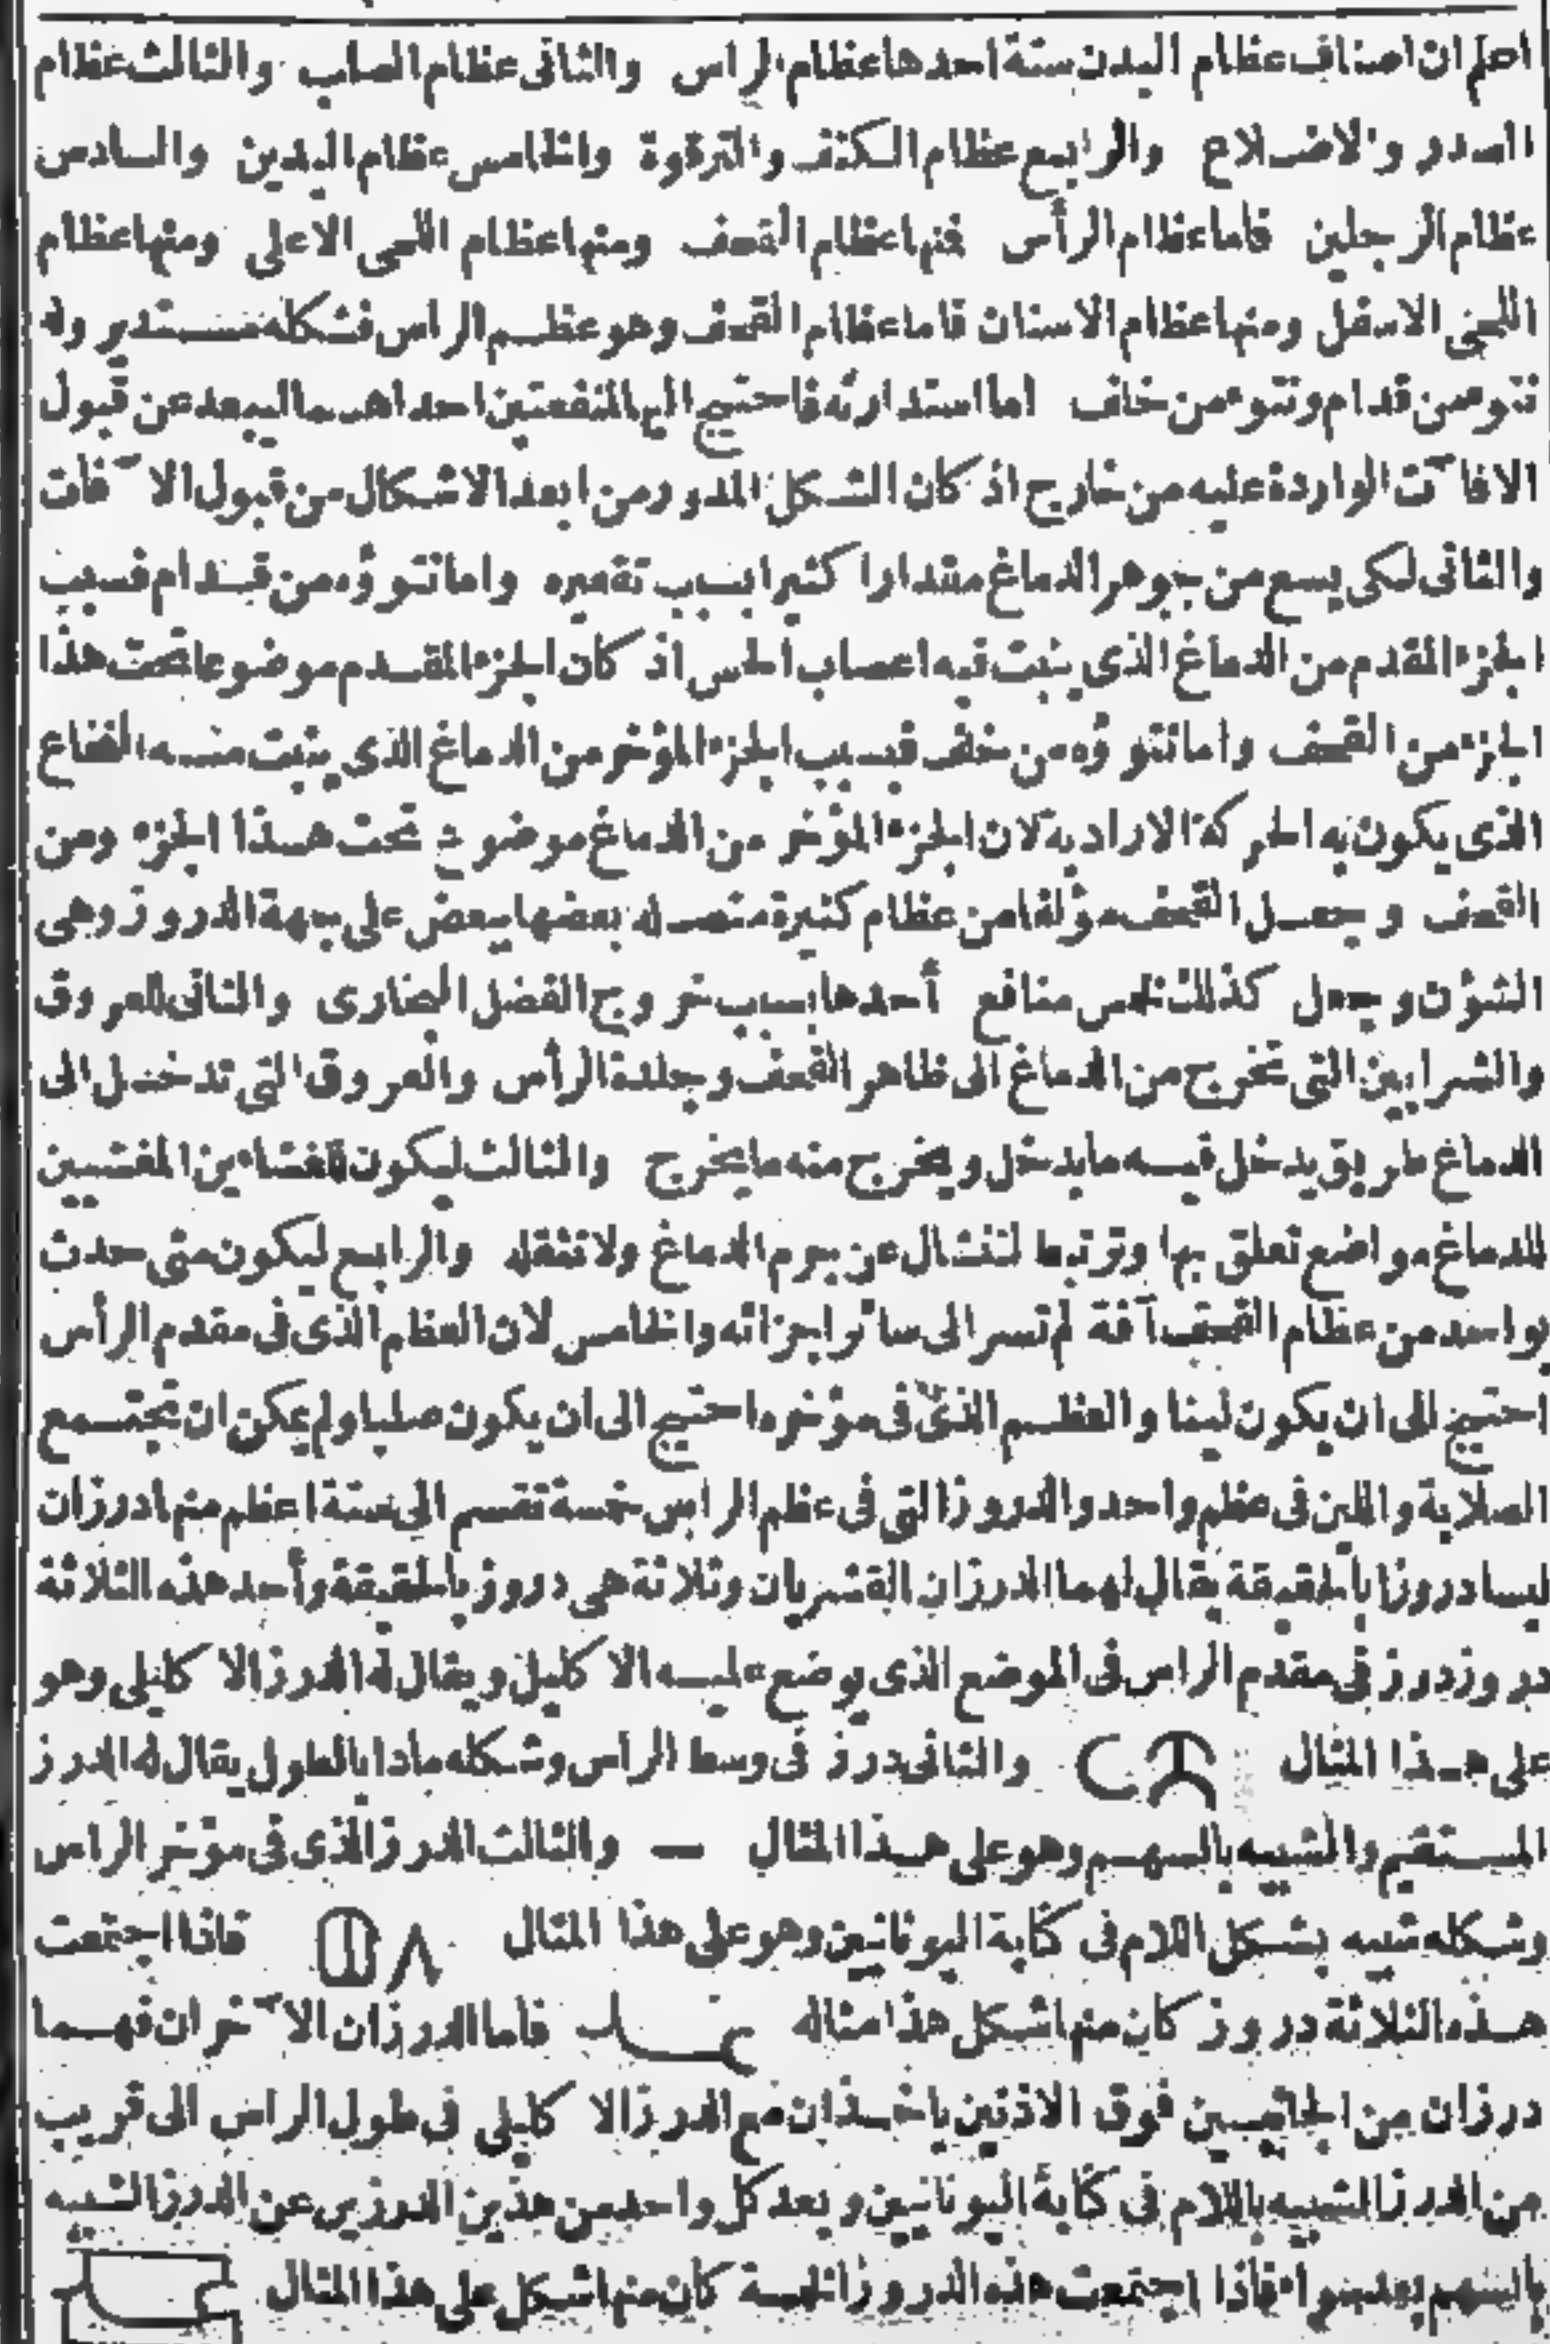 اعلم ان اصناف عظام البدن ستة احدها عظام الراس والثانى عظام الصلب والثالث عظام
الصدر والاضلاع والرابع عظام الكتف والترقوة والخامس عظام اليدين والسادس
عظام الرجلين فاما عظام الرأس فمنها عظام القحف ومنها عظام اللحى الاعلى ومنها عظام
اللحى الاسفل ومنها عظام الاسنان فاما عظام القحف وهو عظم الراس فشكله مستدير وله
نتوء من قدام ونتوء من خلف اما استدارته فاحتيج اليها لمنفعتين احداهما ليبعد عن قبول
الافاآت الواردة عليه من خارج اذ كان الشكل المدور من ابعد الاشكال من قبول الآفات
والثانى لكى يسع من جوهر الدماغ مقدارا كثيرا بسبب تقعيره واما نتوؤه من قدام فسبب
الجزء المقدم من الدماغ الذى ينبت فيه اعصاب الحس اذ كان الجزء المقدم موضوعا تحت هذا
الجزء من القحف واما نتوؤه من خلف فبسبب الجزء المؤخر من الدماغ الذى ينبت منه النخاع
الذى يكون به الحركة الارادية لان الجزء المؤخر من الدماغ موضوع تحت هذا الجزء ومن
القحف وجعل القحف مؤلفا من عظام كثيرة متصلة بعضها ببعض على جهة الدروز وهى
الشؤن وجعل كذلك لخمس منافع أحدها بسبب خروج الفضل البخارى والثانى للعروق
والشرايين التى تخرج من الدماغ الى ظاهر القحف وجلدة الرأس والعروق التى تدخل الى
الدماغ طريق يدخل فيه ما يدخل ويخرج منه ما يخرج والثالث ليكون للغشاءين المغشيين
للدماغ مواضع تعلق بها وترتبط لتنشال عن جرم الدماغ ولا تثقله والرابع ليكون متى حدث
بواحد من عظام القحف آفة لم تسر الى سائر اجزائه والخامس لان العظم الذى فى مقدم الرأس
احتيج الى ان يكون لينا والعظم الذى فى مؤخره احتيج الى ان يكون صلبا ولم يمكن ان تجتمع
الصلابة واللين فى عظم واحد والدروز التى فى عظم الراس خمسة تقسم الى ستة اعظم منها درزان
ليسا دروزا بالحقيقة يقال لهما الدرزان القشريان وثلاثة هى دروز بالحقيقة وأحد هذه الثلاثة
دروز درز فى مقدم الراس فى الموضع الذى يوضع عليه الاكليل ويقال له الدرز الاكليلى وهو
على هذا المثال والثانى درز فى وسط الراس وشكله مادا بالطول يقال له الدرز
المستقيم والشبيه بالسهم وهو على هذا المثال — والثالث الدرز الذى فى مؤخر الراس
وشكله شبيه بشكل اللام فى كتابة اليونانيين وهو على هذا المثال ٨ فاذا اجتمعت
هذه الثلاثة دروز كان منها شكل هذا مثاله فاما الدرزان الآخران فهما
درزان من الجانبين فوق الاذنين ياخذان مع الدرز الاكليلى فى طول الراس الى قريب
من الدرز الشبيه باللام فى كتابة اليونانيين وبعد كل واحد من هذين الدرزين عن الدرز الشبيه
بالسهم بعد سواء فاذا اجتمعت هذه الدروز الخمسة كان منها شكل على هذا المثال